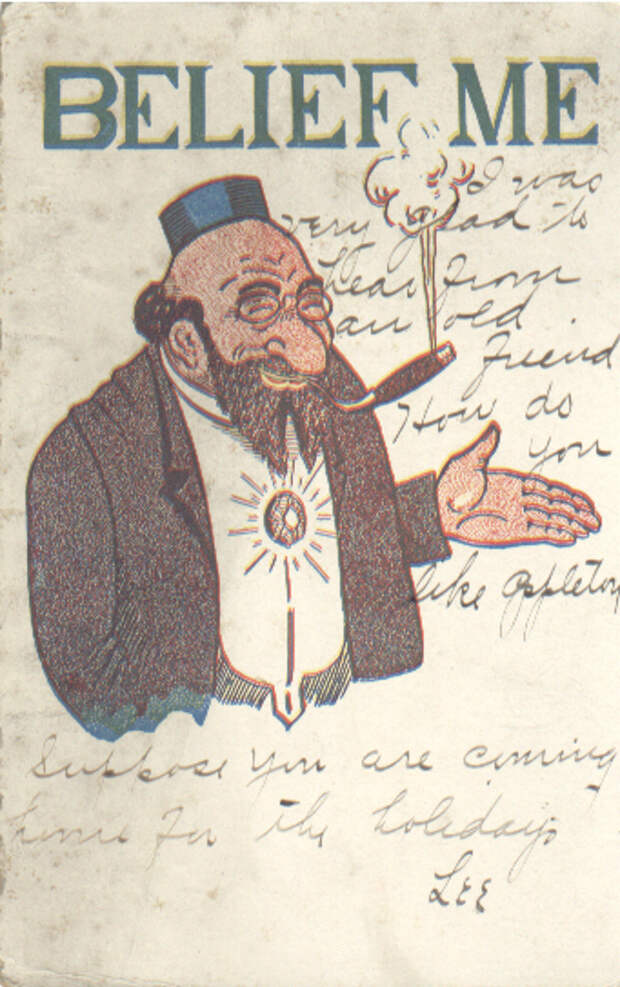 BELIEF ME
I was
very glad to
hear from
an old
friend
How do
you
like Appleton
Suppose you are coming
home for the holidays
Lee